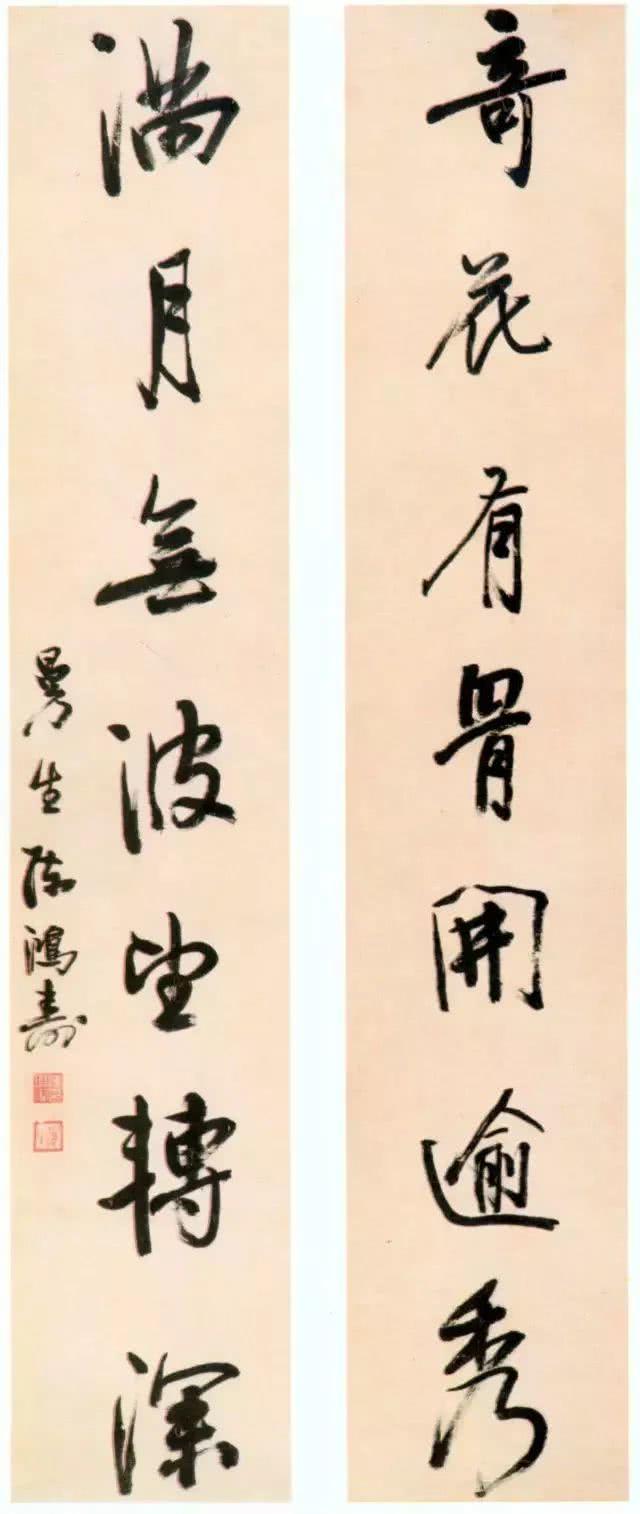 竒花有骨開逾秀
滿月無波望轉深
曼生陳鴻壽